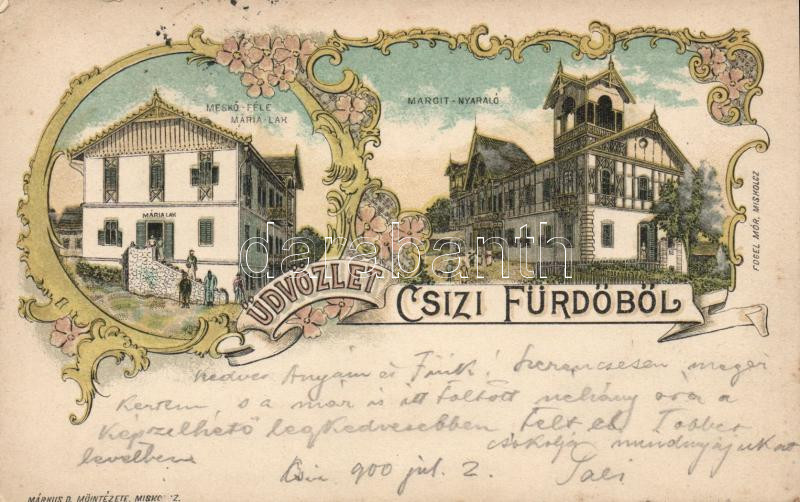 MESKÓ-FÉLE
MÁRIA-LAK
MARGIT-NYARALÓ
MÁRIA LAK
FOGEL MÓR, MISKOLCZ
darabanth.com
ÜDVÖZLET
CSIZI FÜRDŐBŐL
Kedves Anyám és Fiúk! Szerencsésen meger
keztem, s a már is itt töltött néhány óra a
képzelhető legkedvesebben telt el. Többet
levélben csókolja mindnyájukat
Csiz 900 jul. 2.
MÁRKUS D. MŰINTÉZETE, MISKOLCZ.